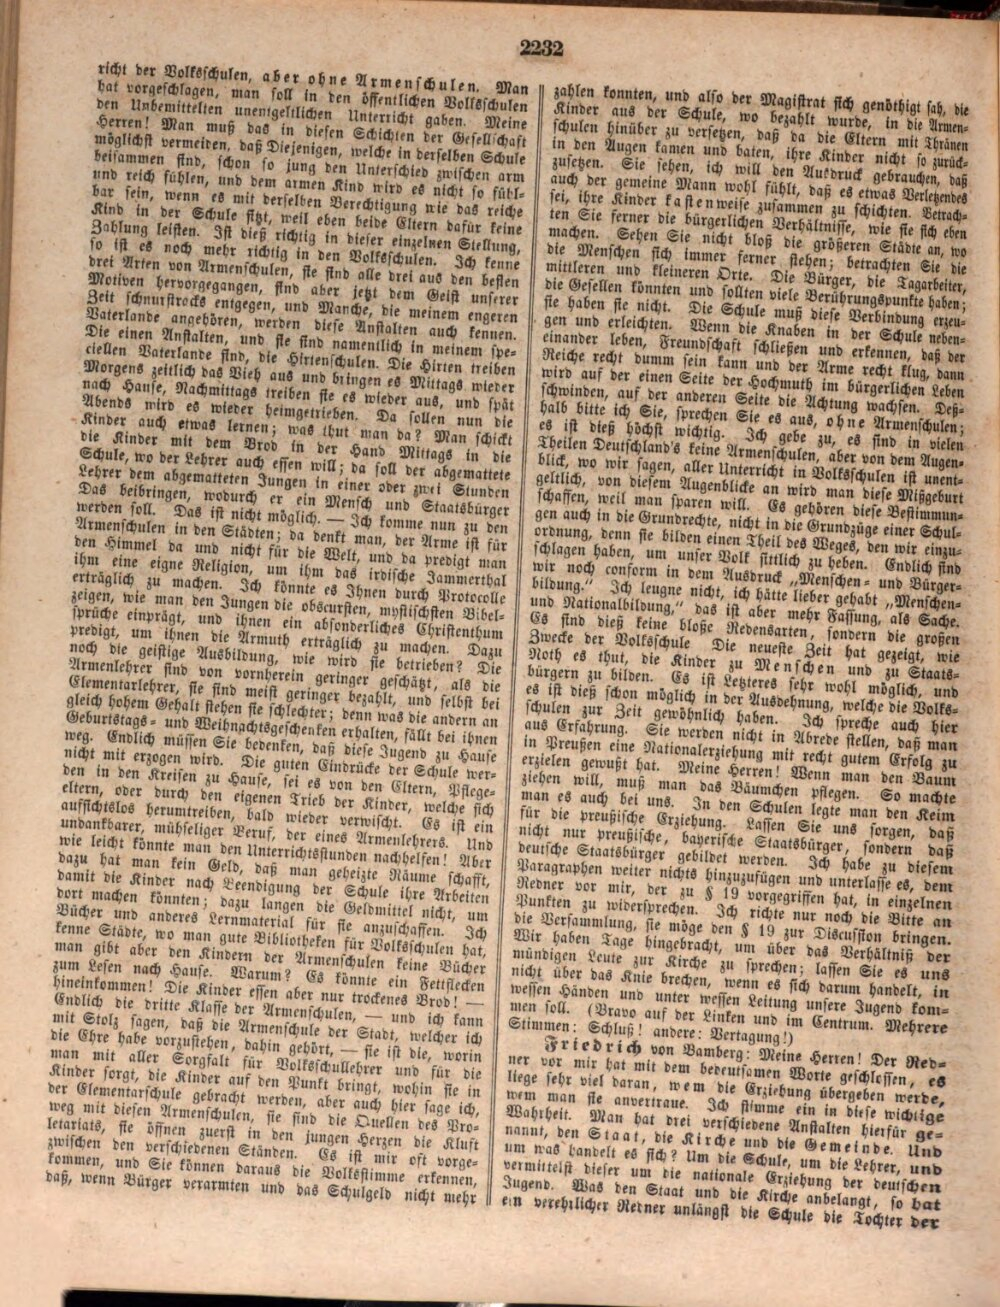 2232
richt der Volksschulen, aber ohne Armenschulen. Man
hat vorgeschlagen, man soll in den öffentlichen Volksschulen
den Unbemittelten unentgeltlichen Unterricht geben. Meine
Herren! Man muß das in diesen Schichten der Gesellschaft
möglichst vermeiden, daß Diejenigen, welche in derselben Schule
beisammen sind, schon so jung den Unterschied zwischen arm
und reich fühlen, und dem armen Kind wird es nicht so fühl-
bar sein, wenn es mit derselben Berechtigung wie das reiche
Kind in der Schule sitzt, weil eben beide Eltern dafür keine
Zahlung leisten. Ist dieß richtig in dieser einzelnen Stellung,
so ist es noch mehr richtig in den Volksschulen. Ich kenne
drei Arten von Armenschulen, sie sind alle drei aus den besten
Motiven hervorgegangen, sind aber jetzt dem Geist unserer
Zeit schnurstracks entgegen, und Manche, die meinem engeren
Vaterlande angehören, werden diese Anstalten auch kennen.
Die einen Anstalten, und sie sind namentlich in meinem spe-
ciellen Vaterland sind, die Hirtenschulen. Die Hirten treiben
Morgens zeitlich das Vieh aus und bringen es Mittags wieder
nach Hause, Nachmittags treiben sie es wieder aus, und spät
Abends wird es wieder heimgetrieben. Da sollen nun die
Kinder auch etwas lernen; was thut man da? Man schickt
die Kinder mit dem Brod in der Hand Mittags in die
Schule, wo der Lehrer auch essen will; da soll der abgemattete
Lehrer dem abgematteten Jungen in einer oder zwei Stunden
Das beibringen, wodurch er ein Mensch und Staatsbürger
werden soll. Das ist nicht möglich. — Ich komme nun zu den
Armenschulen in den Städten; da denkt man, der Arme ist für
den Himmel da und nicht für die Welt, und da predigt man
ihm eine eigne Religion, um ihm das irdische Jammerthal
erträglich zu machen. Ich könnte es Ihnen durch Protocolle
zeigen, wie man den Jungen die obscursten, mystischsten Bibel-
sprüche einprägt, und ihnen ein absonderliches Christenthum
predigt, um ihnen die Armuth erträglich zu machen. Dazu
noch die geistige Ausbildung, wie wird sie betrieben? Die
Armenlehrer sind von vornherein geringer geschätzt, als die
Elementarlehrer, sie sind meist geringer bezahlt, und selbst bei
gleich hohem Gehalt stehen sie schlechter; denn was die andern an
Geburtstags- und Weihnachtsgeschenken erhalten, fällt bei ihnen
weg. Endlich müssen Sie bedenken, daß diese Jugend zu Hause
nicht mit erzogen wird. Die guten Eindrücke der Schule wer-
den in den Kreisen zu Hause, sei es von den Eltern, Pflege-
eltern, oder durch den eigenen Trieb der Kinder, welche sich
aufsichtslos herumtreiben, bald wieder verwischt. Es ist ein
undankbarer, mühseliger Beruf, der eines Armenlehrers. Und
wie leicht könnte man den Unterrichtsstunden nachhelfen! Aber
dazu hat man kein Geld, daß man geheizte Räume schafft,
damit die Kinder nach Beendigung der Schule ihre Arbeiten
dort machen könnten; dazu langen die Geldmittel nicht, um
Bücher und anderes Lernmaterial für sie anzuschaffen. Ich
kenne Städte, wo man gute Bibliotheken für Volksschulen hat,
man gibt aber den Kindern der Armenschulen keine Bücher
zum Lesen nach Hause. Warum? Es könnte ein Fettflecken
hineinkommen! Die Kinder essen aber nur trockenes Brod! —
Endlich die dritte Klasse der Armenschulen, — und ich kann
mit Stolz sagen, daß die Armenschule der Stadt, welcher ich
die Ehre habe vorzustehen, dahin gehört, — sie ist die, worin
man mit aller Sorgfalt für Volksschullehrer und für die
Kinder sorgt, die Kinder auf den Punkt bringt, wohin sie in
der Elementarschule gebracht werden, aber auch hier sage ich,
weg mit diesen Armenschulen, sie sind die Quellen des Pro-
letariats, sie öffnen zuerst in den jungen Herzen die Kluft
zwischen den verschiedenen Ständen. Es ist mir oft vorge-
kommen, und Sie können daraus die Volksstimme erkennen,
daß, wenn Bürger verarmten und das Schulgeld nicht mehr
zahlen konnten, und also der Magistrat sich genöthigt sah, die
Kinder aus der Schule, wo bezahlt wurde, in die Armen-
schulen hinüber zu versetzen, daß da die Eltern mit Thränen
in den Augen kamen und baten, ihre Kinder nicht so zurück-
zusetzen. Sie sehen, ich will den Ausdruck gebrauchen, daß
auch der gemeine Mann wohl fühlt, daß es etwas Verletzendes
sei, ihre Kinder kastenweise zusammen zu schichten. Betrach-
ten Sie ferner die bürgerlichen Verhältnisse, wie sie sich eben
machen. Sehen Sie nicht bloß die größeren Städte an, wo
die Menschen sich immer ferner stehen; betrachten Sie die
mittleren und kleineren Orte. Die Bürger, die Tagarbeiter,
die Gesellen könnten und sollten viele Berührungspunkte haben;
sie haben sie nicht. Die Schule muß diese Verbindung erzeu-
gen und erleichten. Wenn die Knaben in der Schule neben-
einander leben, Freundschaft schließen und erkennen, daß der
Reiche recht dumm sein kann und der Arme recht klug, dann
wird auf der einen Seite der Hochmuth im bürgerlichen Leben
schwinden, auf der anderen Seite die Achtung wachsen. Deß-
halb bitte ich Sie, sprechen Sie es aus, ohne Armenschulen;
es ist dieß höchst wichtig. Ich gebe zu, es sind in vielen
Theilen Deutschland's keine Armenschulen, aber von dem Augen-
blick, wo wir sagen, aller Unterricht in Volksschulen ist unent-
geltlich, von diesem Augenblicke an wird man diese Mißgeburt
schaffen, weil man sparen will. Es gehören diese Bestimmun-
gen auch in die Grundrechte, nicht in die Grundzüge einer Schul-
ordnung, denn sie bilden einen Theil des Weges, den wir einzu-
schlagen haben, um unser Volk sittlich zu heben. Endlich sind
wir noch conform in dem Ausdruck „Menschen- und Bürger-
bildung.“ Ich leugne nicht, ich hätte lieber gehabt „Menschen-
und Nationalbildung,“ das ist aber mehr Fassung, als Sache.
Es sind dieß keine bloße Redensarten, sondern die großen
Zwecke der Volksschule Die neueste Zeit hat gezeigt, wie
Noth es thut, die Kinder zu Menschen und zu Staats-
bürgern zu bilden. Es ist Letzteres sehr wohl möglich, und
es ist dieß schon möglich in der Ausdehnung, welche die Volks-
schulen zur Zeit gewöhnlich haben. Ich spreche auch hier
aus Erfahrung. Sie werden nicht in Abrede stellen, daß man
in Preußen eine Nationalerziehung mit recht gutem Erfolg zu
erzielen gewußt hat. Meine Herren! Wenn man den Baum
ziehen will, muß man das Bäumchen pflegen. So machte
man es auch bei uns. In den Schulen legte man den Keim
für die preußische Erziehung. Lassen Sie uns sorgen, daß
nicht nur preußische, bayerische Staatsbürger, sondern daß
deutsche Staatsbürger gebildet werden. Ich habe zu diesem
Paragraphen weiter nichts hinzuzufügen und unterlasse es, dem
Redner vor mir, der zu § 19 vorgegriffen hat, in einzelnen
Punkten zu widersprechen. Ich richte nur noch die Bitte an
die Versammlung, sie möge den § 19 zur Discussion bringen.
Wir haben Tage hingebracht, um über das Verhältniß der
mündigen Leute zur Kirche zu sprechen; lassen Sie es uns
nicht über das Knie brechen, wenn es sich darum handelt, in
wessen Händen und unter wessen Leitung unsere Jugend kom-
men soll. (Bravo auf der Linken und im Centrum. Mehrere
Stimmen: Schluß! andere: Vertagung!)
Friedrich von Bamberg: Meine Herren! Der Red-
ner vor mir hat mit dem bedeutsamen Worte geschlossen, es
liege sehr viel daran, wem die Erziehung übergeben werde,
wem man sie anvertraue. Ich stimme ein in diese wichtige
Wahrheit. Man hat drei verschiedene Anstalten hierfür ge-
nannt, den Staat, die Kirche und die Gemeinde. Und
um was handelt es sich? Um die Schule, um die Lehrer, und
vermittelst dieser um die nationale Erziehung der deutschen
Jugend. Was den Staat und die Kirche anbelangt, so hat
ein verehrlicher Redner unlängst die Schule die Tochter der